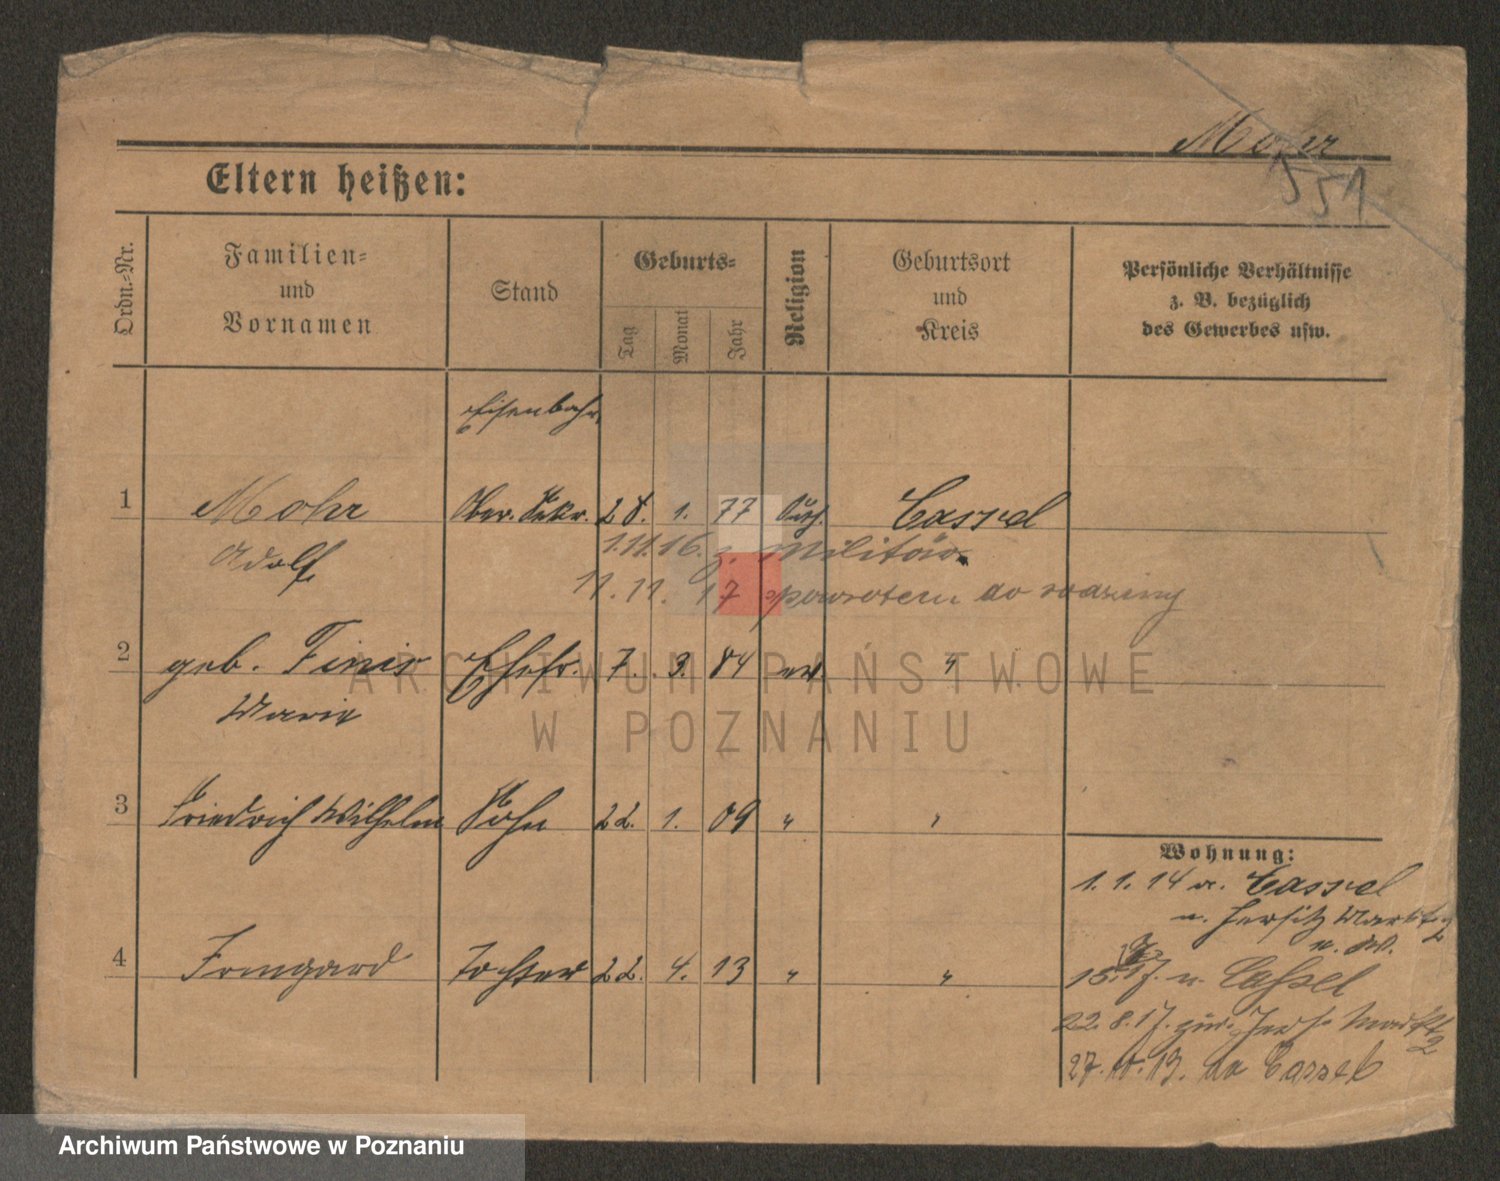 Mohr
551
Eltern heißen:
Ordn.-Nr.
Familien-
und
Vornamen
Stand
Geburts-
Tag
Monat
Jahr
Religion
Geburtsort
und
Kreis
Persönliche Verhältnisse
z. B. bezüglich
des Gewerbes usw.
Eisenbahn
1 Mohr Ober. Sekr. 28. 1. 77 Cassel
Adolf
1.11.16. z. Militär
11.11.17 powrotem do rodziny
2 geb. Ehefr. 7. 3. 84 ev. "
Marie
3 Friedrich Wilhelm Sohn 22. 1. 09 " "
4 Irmgard Tochter 22. 4. 13 " "
Wohnung:
1.1.14 v. Cassel
n. Jersitz Markt 2
15. 17. n. Cassel
22.8.17. zur. Jers. Markt
2
27. 10. 19. do Cassel
ARCHIWUM PAŃSTWOWE
W POZNANIU
Archiwum Państwowe w Poznaniu